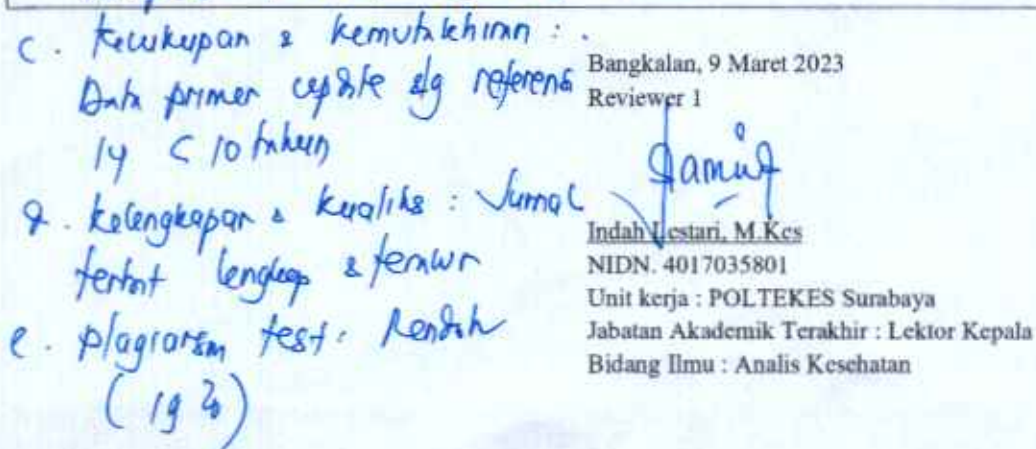 c. Kecukupan & kemutakhiran :
Data primer update dg referensi
14 < 10 tahun
d. kelengkapan & kualitas : Jurnal
terbit lengkap &
e. plagiarism test : Rendah
(19 %)
Bangkalan, 9 Maret 2023
Reviewer 1
Indah Lestari, M.Kes
NIDN. 4017035801
Unit kerja : POLTEKES Surabaya
Jabatan Akademik Terakhir : Lektor Kepala
Bidang Ilmu : Analis Kesehatan